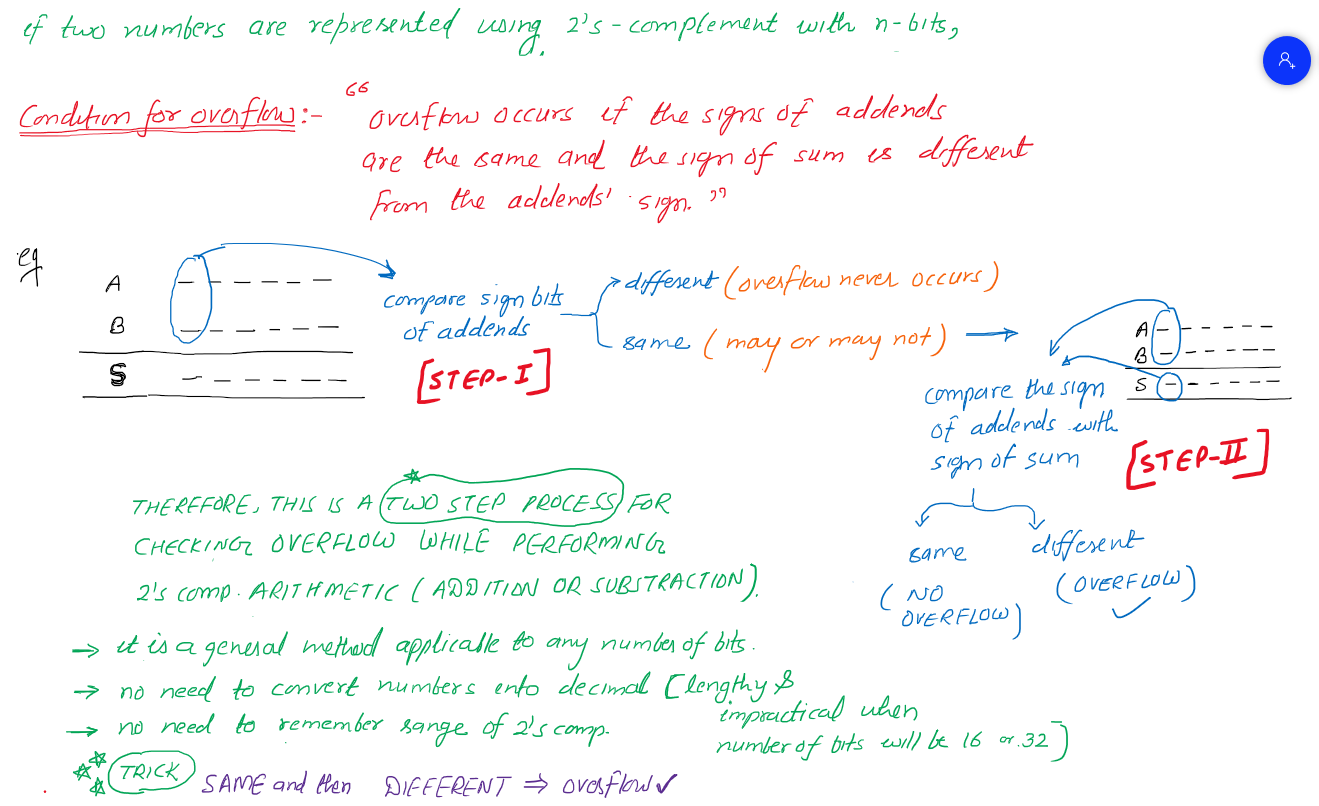 if two numbers are represented using 2's-complement with n-bits,
Condition for overflow:- “ overflow occurs if the signs of addends
are the same and the sign of sum is different
from the addends' sign. ”
eg
A
B
S
compare sign bits
of addends
[STEP-I]
different (overflow never occurs)
same (may or may not)
A
B
S
compare the sign
of addends with
sign of sum
[STEP-II]
same
(NO
OVERFLOW)
different
(OVERFLOW)
THEREFORE, THIS IS A TWO STEP PROCESS FOR
CHECKING OVERFLOW WHILE PERFORMING
2's comp. ARITHMETIC (ADDITION OR SUBSTRACTION).
→ it is a general method applicable to any number of bits.
→ no need to convert numbers into decimal [lengthy &
impractical when
number of bits will be 16 or 32]
→ no need to remember range of 2's comp.
TRICK SAME and then DIFFERENT ⇒ overflow ✓